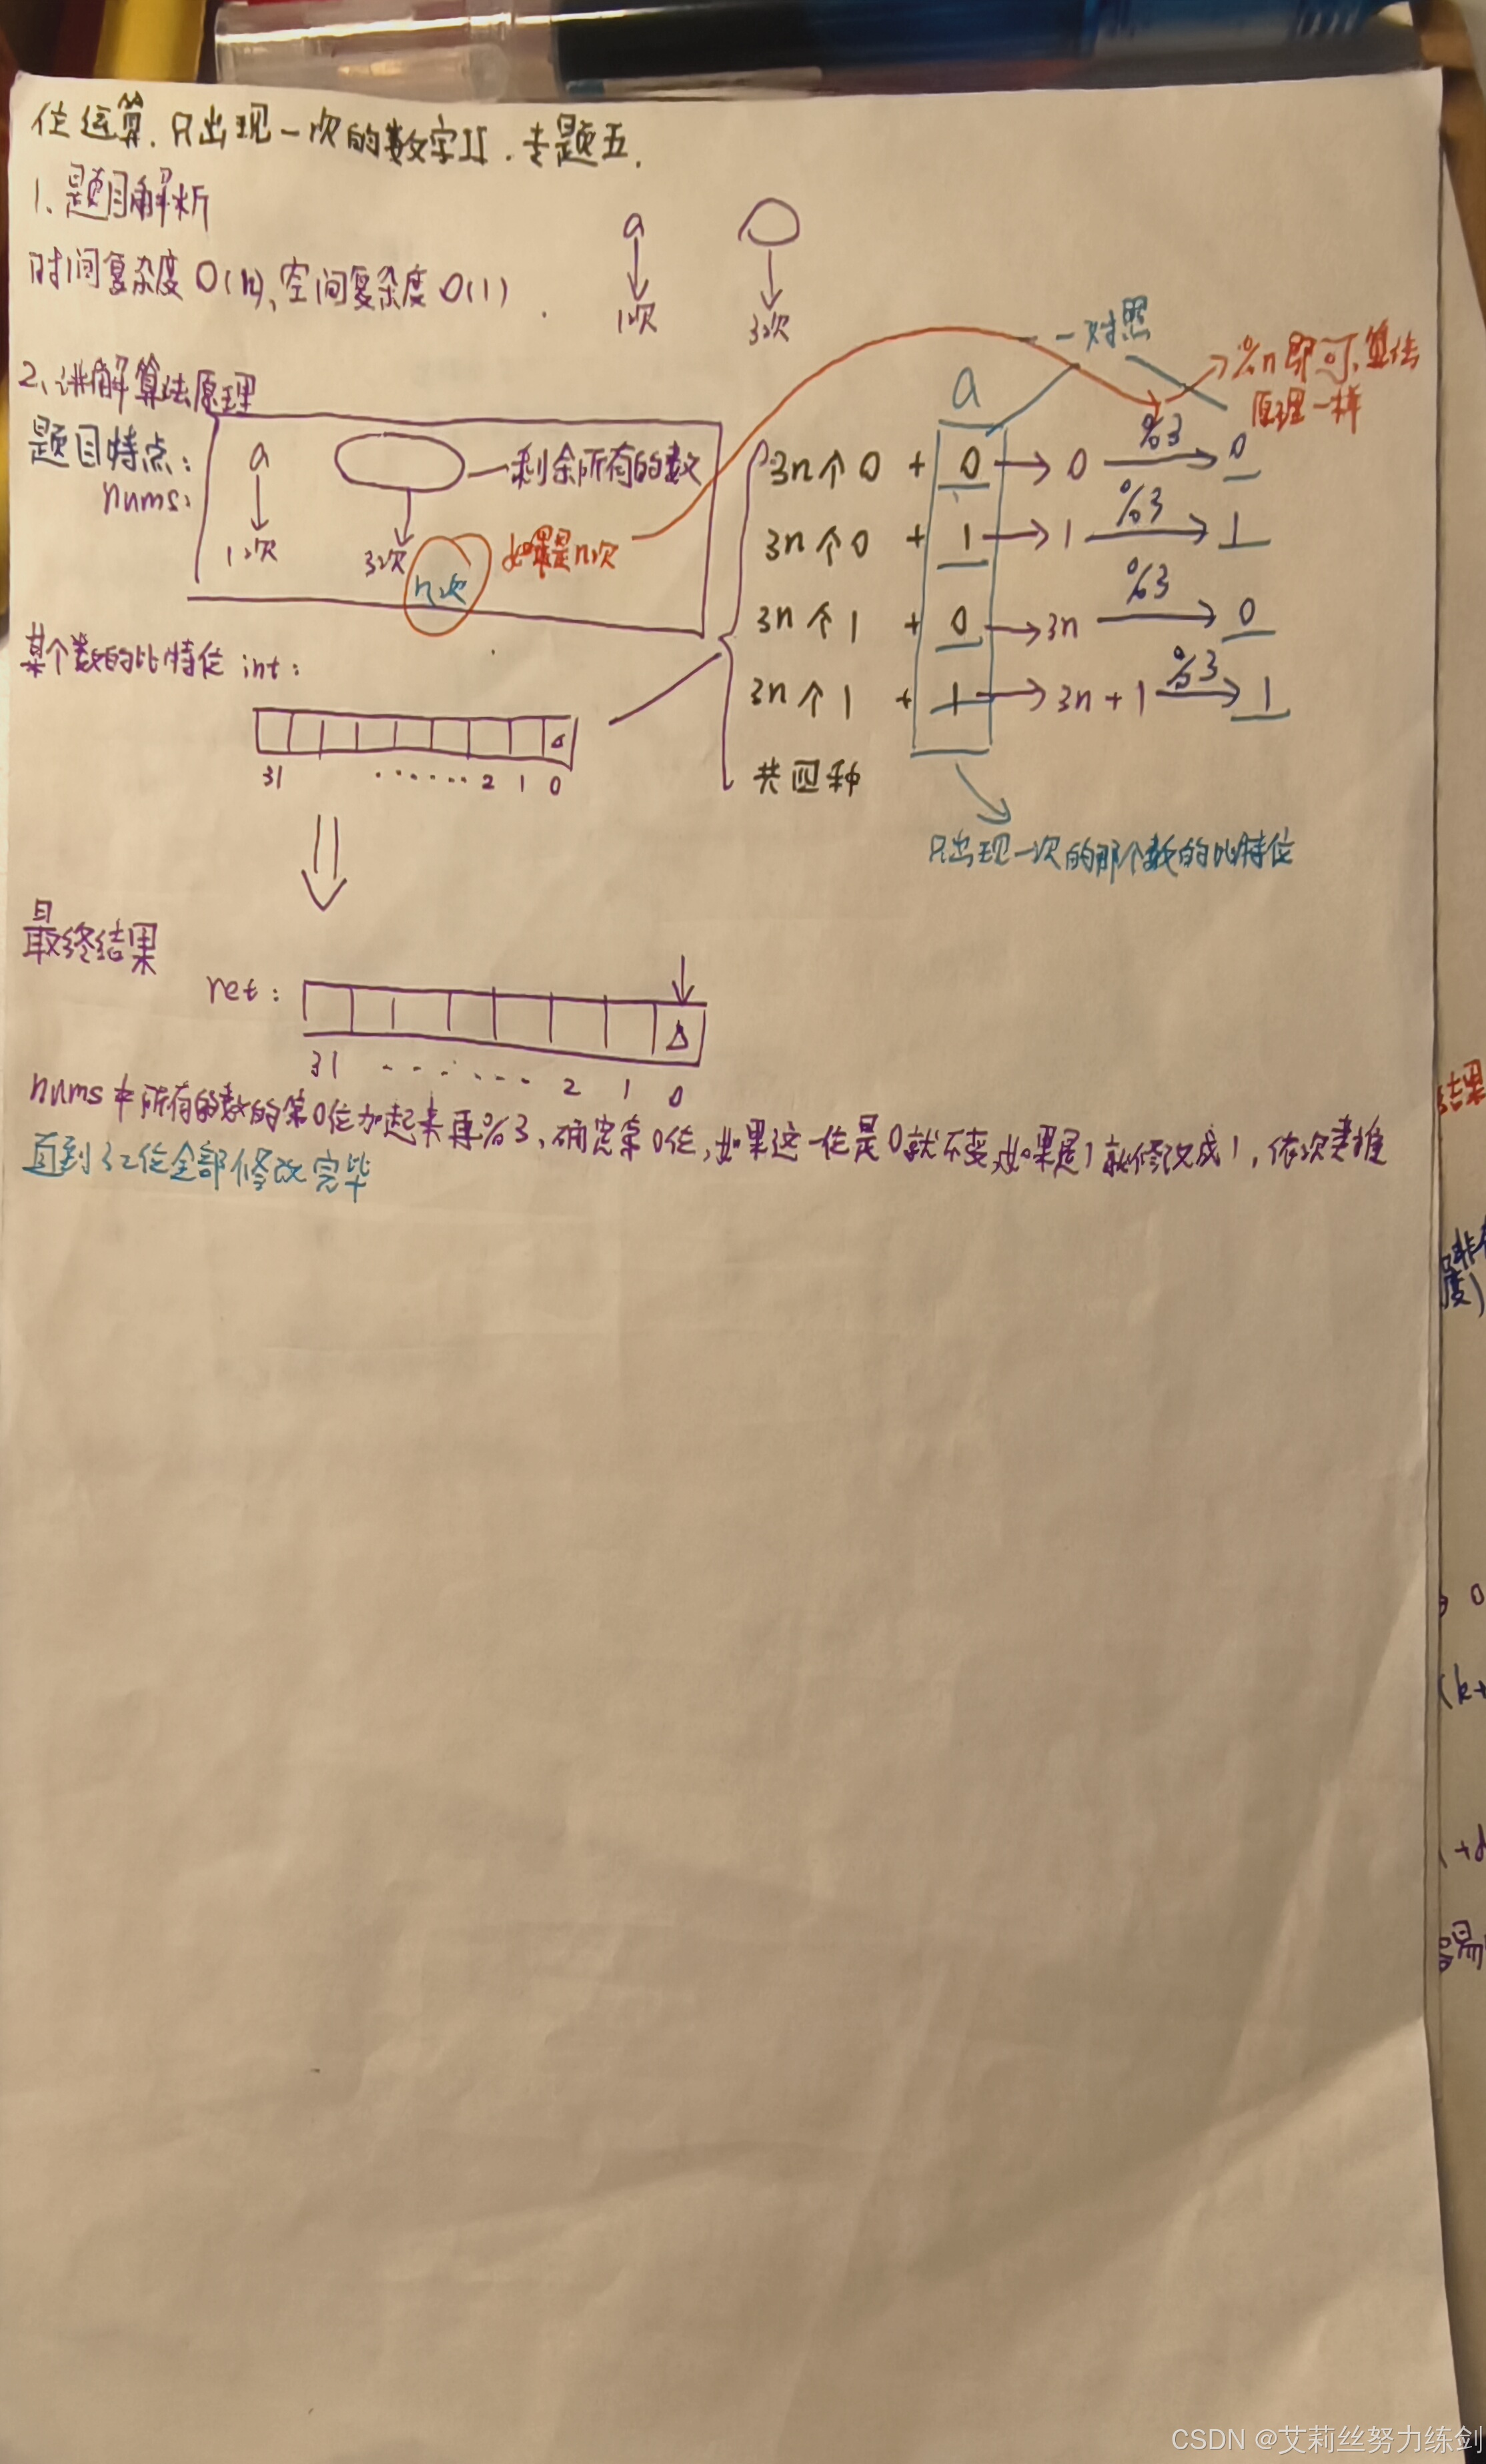 位运算.只出现一次的数字II.专题五.
1、题目解析
时间复杂度O(n)、空间复杂度O(1).
a
1次
3次
一一对照
%n即可,算法
原理一样
2、讲解算法原理
题目特点:
nums:
a
1次
剩余所有的数
3次
n次
如果是n次
a
3n个0 + 0 → 0 %3 → 0
3n个0 + 1 → 1 %3 → 1
3n个1 + 0 → 3n %3 → 0
3n个1 + 1 → 3n+1 %3 → 1
共四种
只出现一次的那个数的比特位
某个数的比特位 int:
31 ...... 2 1 0
最终结果
ret:
31 ...... 2 1 0
nums中所有的数的第0位加起来再%3、确定第0位,如果这一位是0就不变,如果是1就修改成1,依次类推
直到32位全部修改完毕
结果
度)
0
(k+
+d
易
CSDN @艾莉丝努力练剑